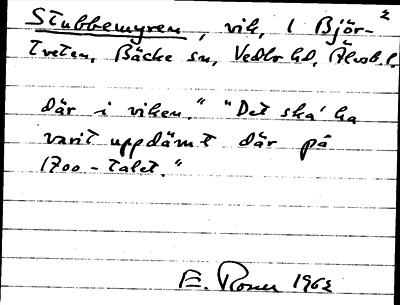 2
Stubbemyren, vik, l Björ-
tveten, Bäcke sn, Vedbo hd, Älvsb. l.
där i viken." "Det ska' ha
varit uppdämt där på
1700-talet."
E. Rosen 1962